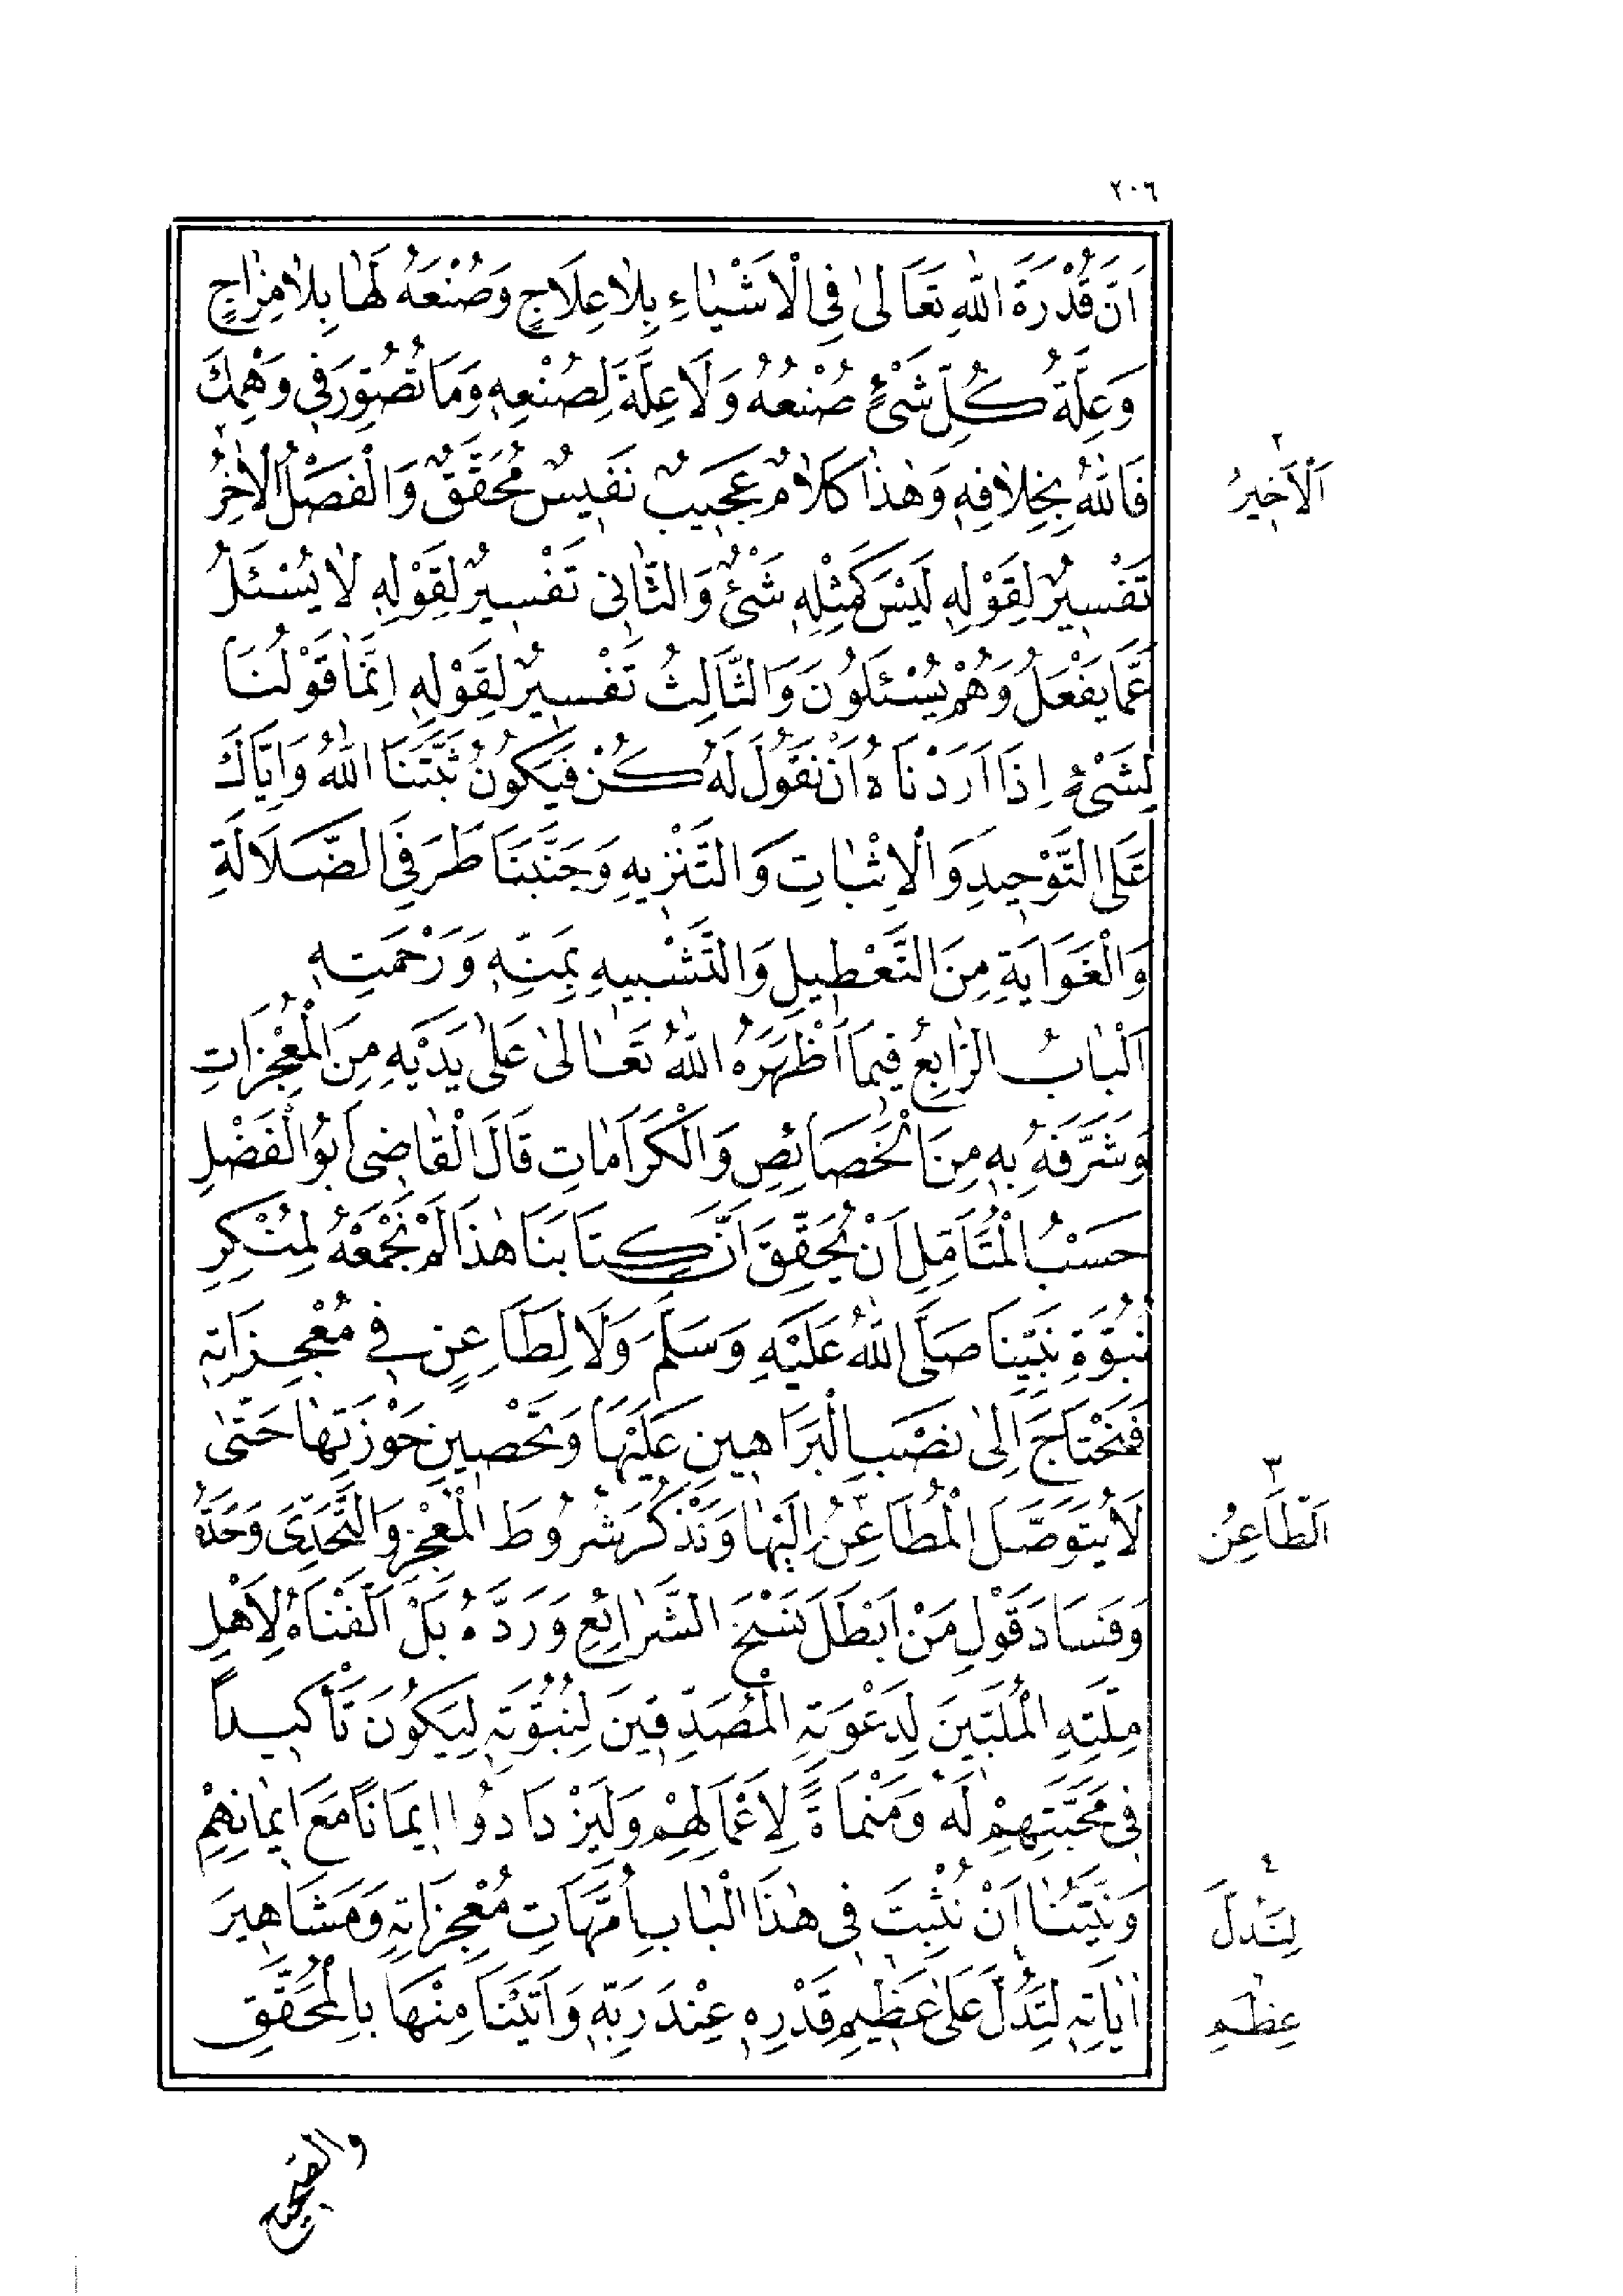 ٢٠٦
اَنَّ قُدْرَةَ اللّٰهِ تَعَالىٰ فِى الْاَشْيَاءِ بِلَا عِلَاجٍ وَصُنْعَهُ لَهَا بِلَا مِزَاجٍ
وَعِلَّةُ كُلِّ شَىْءٍ صُنْعُهُ وَلَا عِلَّةَ لِصُنْعِهِ وَمَا تُصُوِّرَ فِى وَهْمِكَ
فَاللّٰهُ بِخِلَافِهِ وَهٰذَا كَلَامٌ عَجِيبٌ نَفِيسٌ مُحَقَّقٌ وَالْفَصْلُ الْاٰخِرُ ٢
اَلْاَخِيرُ ٢
تَفْسِيرٌ لِقَوْلِهِ لَيْسَ كَمِثْلِهِ شَىْءٌ وَالثَّانِى تَفْسِيرٌ لِقَوْلِهِ لَا يُسْئَلُ
عَمَّا يَفْعَلُ وَهُمْ يُسْئَلُونَ وَالثَّالِثُ تَفْسِيرٌ لِقَوْلِهِ اِنَّمَا قَوْلُنَا
لِشَىْءٍ اِذَا اَرَدْنَاهُ اَنْ نَقُولَ لَهُ كُنْ فَيَكُونُ ثَبَّتَنَا اللّٰهُ وَاِيَّاكَ
عَلَى التَّوْحِيدِ وَالْاِثْبَاتِ وَالتَّنْزِيهِ وَجَنَّبَنَا طَرَفَىِ الضَّلَالَةِ
وَالْغَوَايَةِ مِنَ التَّعْطِيلِ وَالتَّشْبِيهِ بِمَنِّهِ وَرَحْمَتِهِ
اَلْبَابُ الرَّابِعُ فِيمَا اَظْهَرَهُ اللّٰهُ تَعَالىٰ عَلىٰ يَدَيْهِ مِنَ الْمُعْجِزَاتِ
وَشَرَّفَهُ بِهِ مِنَ الْخَصَائِصِ وَالْكَرَامَاتِ قَالَ الْقَاضِى اَبُو الْفَضْلِ
حَسْبُ الْمُتَاَمِّلِ اَنْ يُحَقِّقَ اَنَّ كِتَابَنَا هٰذَا لَمْ نَجْمَعْهُ لِمُنْكِرِ
نُبُوَّةِ نَبِيِّنَا صَلَّى اللّٰهُ عَلَيْهِ وَسَلَّمَ وَلَا لِطَاعِنٍ فِى مُعْجِزَاتِهِ
فَنَحْتَاجَ اِلىٰ نَصْبِ الْبَرَاهِينِ عَلَيْهَا وَتَحْصِينِ حَوْزَتِهَا حَتّىٰ
لَا يَتَوَصَّلَ الْمُطَاعِنُ ٣ اِلَيْهَا وَنَذْكُرَ شُرُوطَ الْمُعْجِزِ وَالتَّحَدِّىَ وَحَدَّهُ
اَلطَّاعِنُ ٣
وَفَسَادَ قَوْلِ مَنْ اَبْطَلَ نَسْخَ الشَّرَائِعِ وَرَدَّهُ بَلْ اَلَّفْنَاهُ لِاَهْلِ
مِلَّتِهِ الْمُلَبِّينَ لِدَعْوَتِهِ الْمُصَدِّقِينَ لِنُبُوَّتِهِ لِيَكُونَ تَأْكِيداً
فِى مَحَبَّتِهِمْ لَهُ وَمَنْمَاةً لِاَعْمَالِهِمْ وَلِيَزْدَادُوا اِيمَانًا مَعَ اِيمَانِهِمْ
وَنِيَّتُنَا اَنْ نُثْبِتَ فِى هٰذَا الْبَابِ اُمَّهَاتِ مُعْجِزَاتِهِ وَمَشَاهِيرَ
لِنَدُلَّ ٤
اٰيَاتِهِ لِتَدُلَّ ٤ عَلىٰ عَظِيمِ قَدْرِهِ عِنْدَ رَبِّهِ وَاَتَيْنَا مِنْهَا بِالْمُحَقَّقِ
عِظَمِ
والصحيح